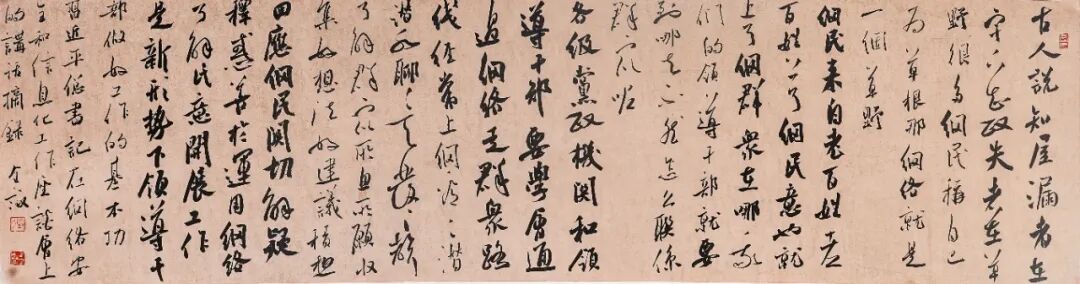 古人說知屋漏者在
宇下知政失者在草
野很多網民稱自己
為草根那網絡就是
一個草野
網民来自老百姓老
百姓上了網民意也就
上了網群衆在哪兒我
們的領導干部就要
到哪去不然怎么聯係
群众呢
各級黨政機関和領
導干部要學會通
過網絡走群衆路
綫經常上網看看潜
潜水聊聊天發發聲
了解群众所思所願收
集好想法好建議積極
回應網民関切解疑
釋惑善於運用網絡
了解民意開展工作
是新形勢下領導干
部做好工作的基本功
習近平總書記在網絡安
全和信息化工作座談會上
的講話摘録